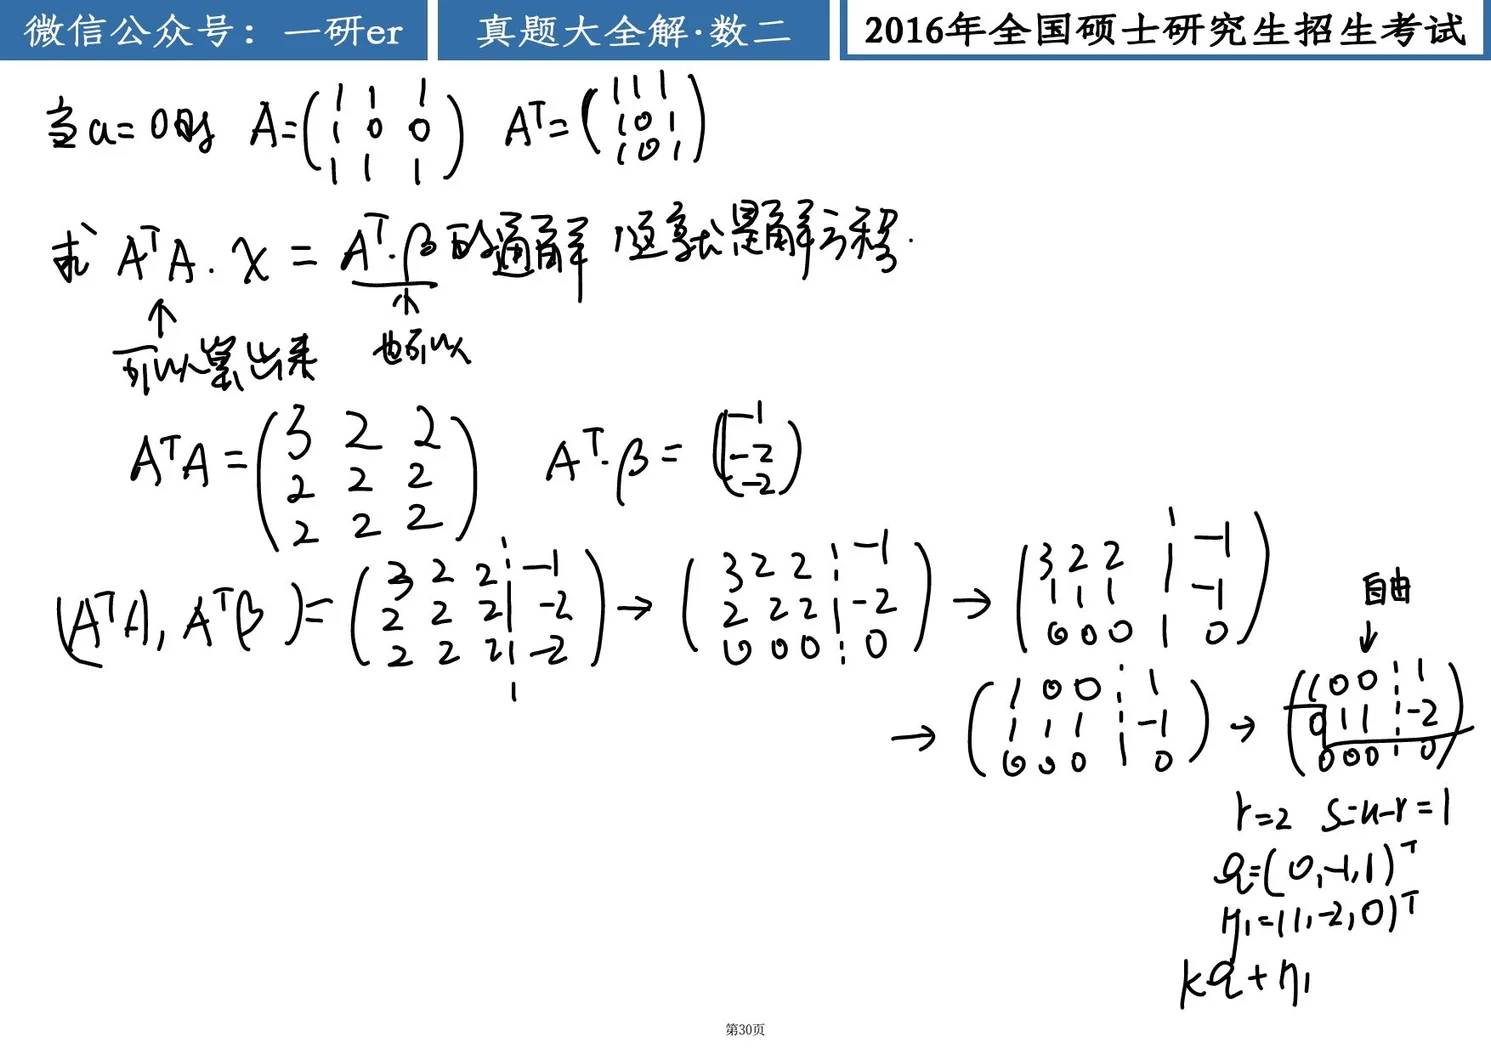 微信公众号：一研er 真题大全解·数二 2016年全国硕士研究生招生考试
当a=0时 A=(1 1 1; 1 0 0; 1 1 1) Aᵀ=(1 1 1; 1 0 1; 1 0 1)
求 AᵀA·x = Aᵀ·β 的通解 这就是解方程.
↑ 可以算出来 也可以
AᵀA=(3 2 2; 2 2 2; 2 2 2) Aᵀ·β=(-1; -2; -2)
(AᵀA, Aᵀβ)=(3 2 2 ¦ -1; 2 2 2 ¦ -2; 2 2 2 ¦ -2) → (3 2 2 ¦ -1; 2 2 2 ¦ -2; 0 0 0 ¦ 0) → (3 2 2 ¦ -1; 1 1 1 ¦ -1; 0 0 0 ¦ 0)
自由
↓
→ (1 0 0 ¦ 1; 1 1 1 ¦ -1; 0 0 0 ¦ 0) → (1 0 0 ¦ 1; 0 1 1 ¦ -2; 0 0 0 ¦ 0)
r=2 S=n-r=1
=(0,-1,1)ᵀ
η₁=(1,-2,0)ᵀ
k +η₁
第30页